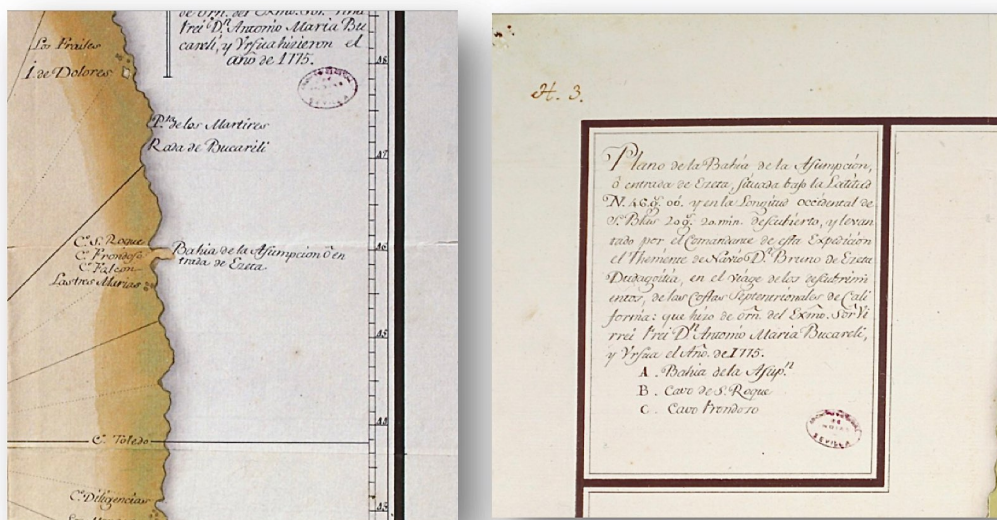 de orn. del Exmo. Sor. Virrei
Frei Dn. Antonio Maria Bu
careli, y Vrsua hizieron el
año de 1775.
Los Frailes
I. de Dolores
Pta. de los Martires
Rada de Bucareli
47
Co. S. Roque
C. Frondoso
C. Falcon
Las tres Marias
Bahia de la Asumpcion ò en
trada de Ezeta
46
45
C. Toledo
Co. Diligencias
H. 3.
Plano de la Bahia de la Asumpcion,
ò entrada de Ezeta, situada bajo la Latitud
N. 46.g. 00. y en la Longitud occidental de
Sn. Blas 20.g. 20. min. descubierto, y levan
tado por el Comandante de esta Expedicion
el Theniente de Navio D. Bruno de Ezeta
Dudagoitia, en el viage de los descubrimi
entos, de las Costas Septentrionales de Cali
fornia: que hizo de orn. del Exmo. Sor Vi
rrei Frei Dn. Antonio Maria Bucareli,
y Vrsua el Año. de 1775.
A. Bahia de la Asup.n
B. Cavo de S. Roque
C. Cavo Frondoso
SEVILLA